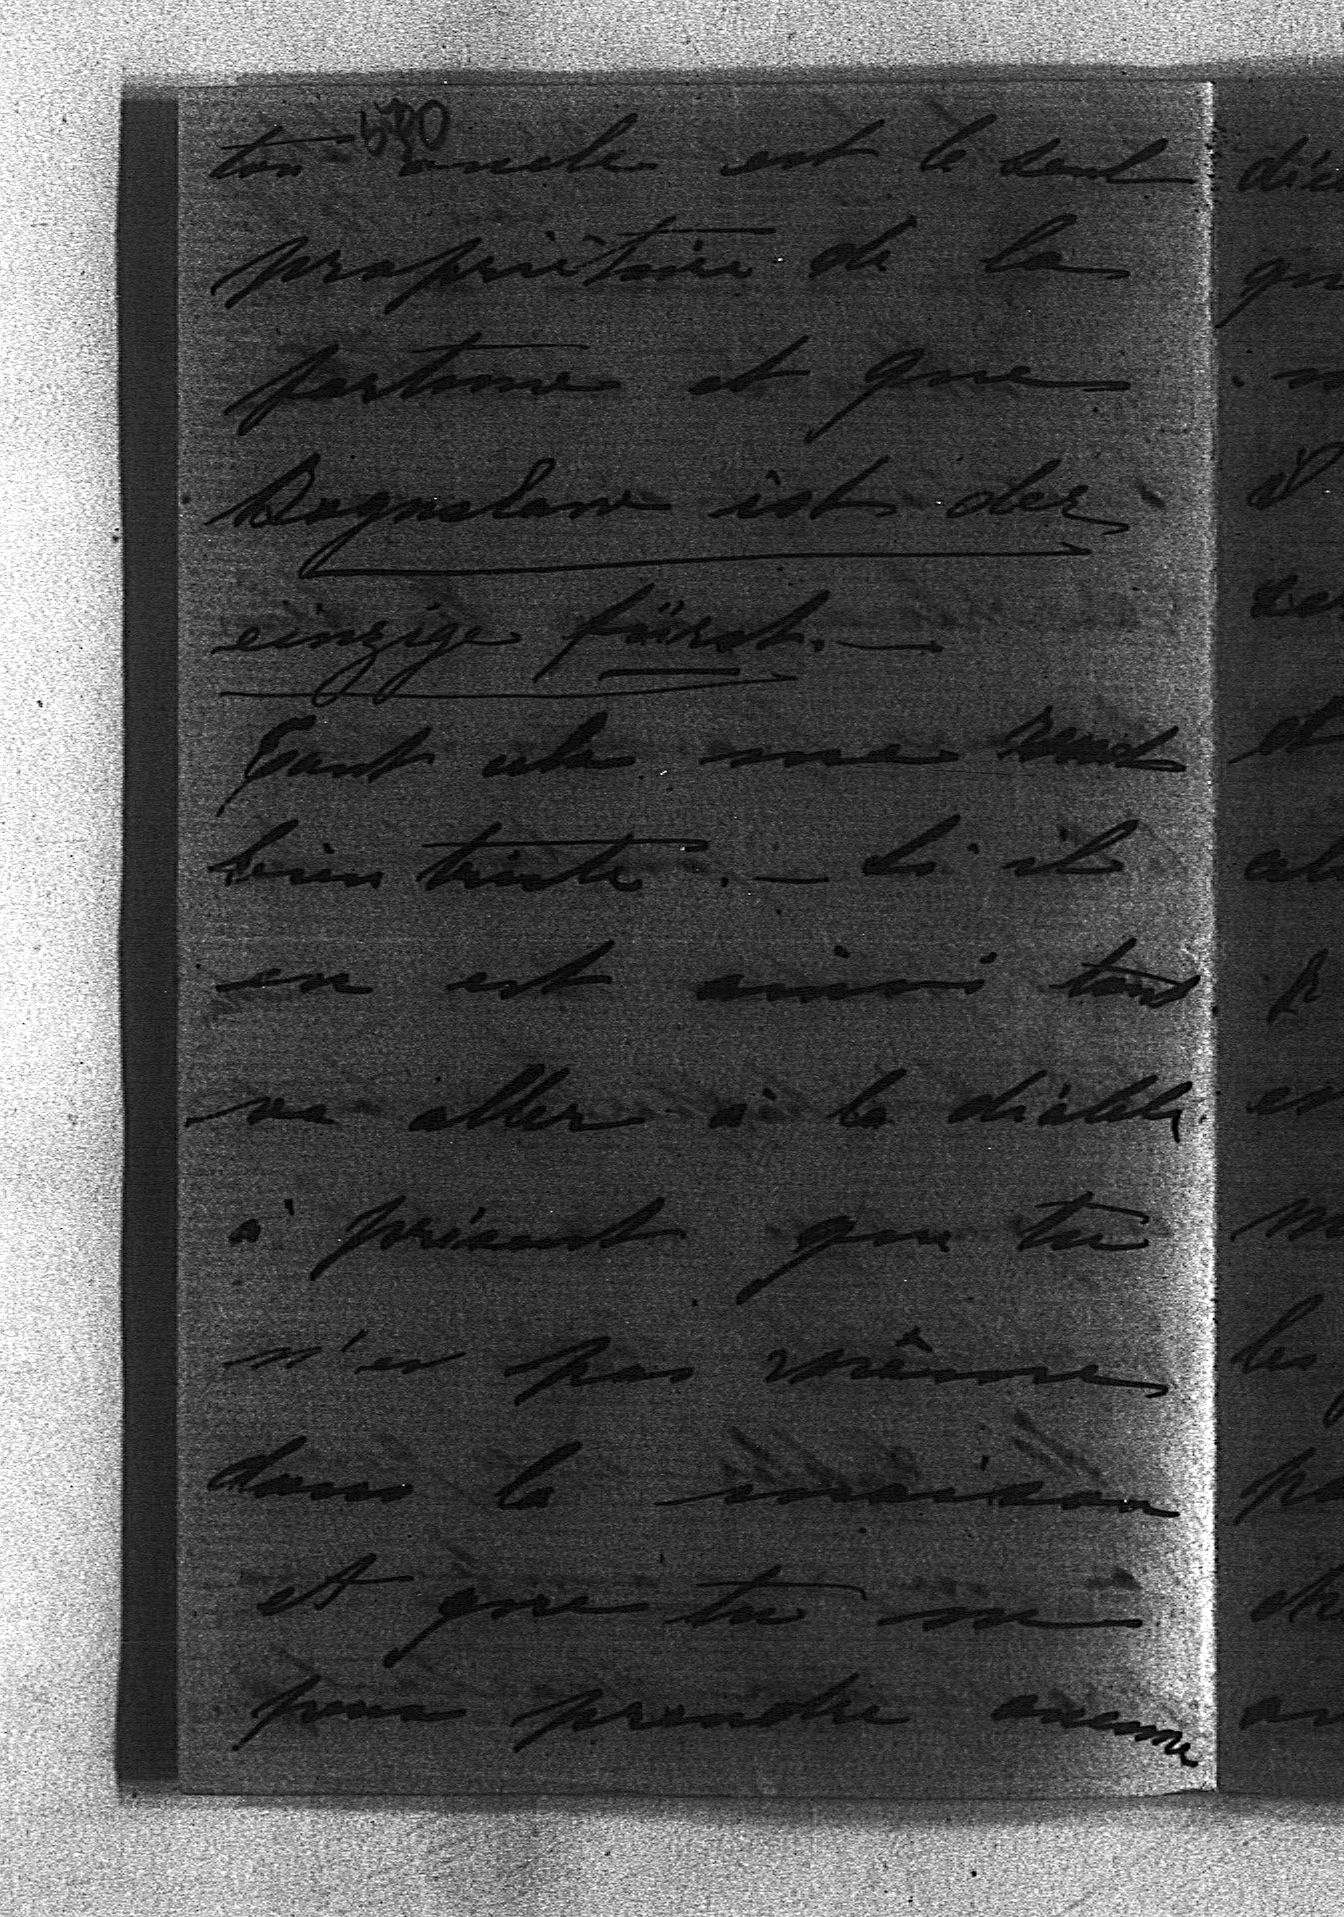 580
ton oncle est le seul
propriétaire de la
fortune et que
Boguslaw ist der
einzige Fürst. —
Tout cela me rend
bien triste. — Si il
en est ainsi tout
va aller à la diable
à présent que tu
n'es pas même
dans la maison
et que tu ne
peux prendre aucune